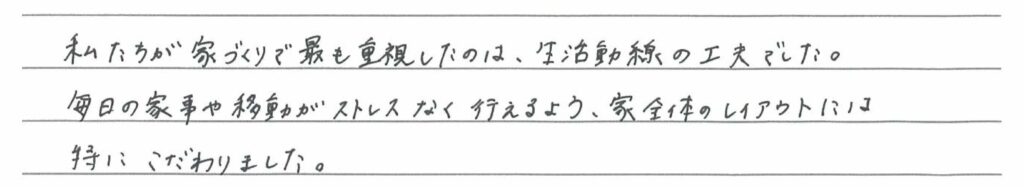 私たちが家づくりで最も重視したのは、生活動線の工夫でした。
毎日の家事や移動がストレスなく行えるよう、家全体のレイアウトには
特にこだわりました。